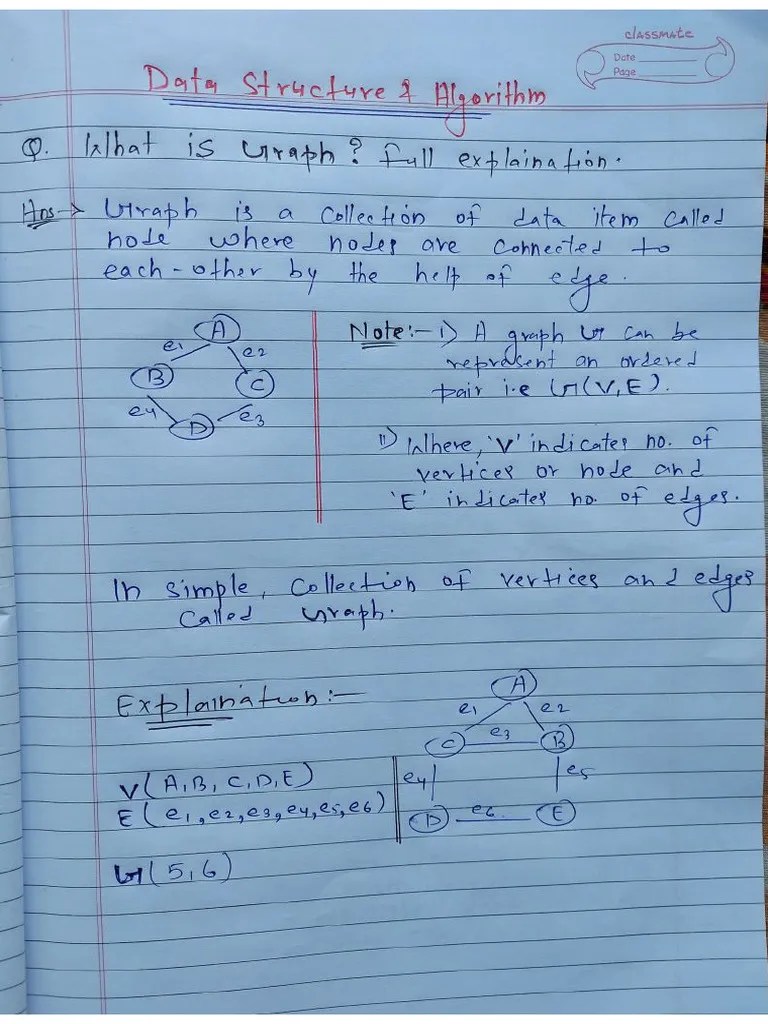 classmate
Date
Page
Data Structure & Algorithm
Q. What is Graph? full explaination.
Ans→ Graph is a collection of data item called
node where nodes are connected to
each-other by the help of edge.
A
e1
e2
B
C
e4
e3
D
Note:- i) A graph G can be
represent an ordered
pair i.e G(V,E).
ii) Where, 'V' indicates no. of
vertices or node and
'E' indicates no. of edges.
In simple, collection of vertices and edges
called Graph.
Explaination:-
A
e1
e2
C
e3
B
V(A,B,C,D,E)
E(e1,e2,e3,e4,e5,e6)
e4
e5
D
e6
E
G(5,6)